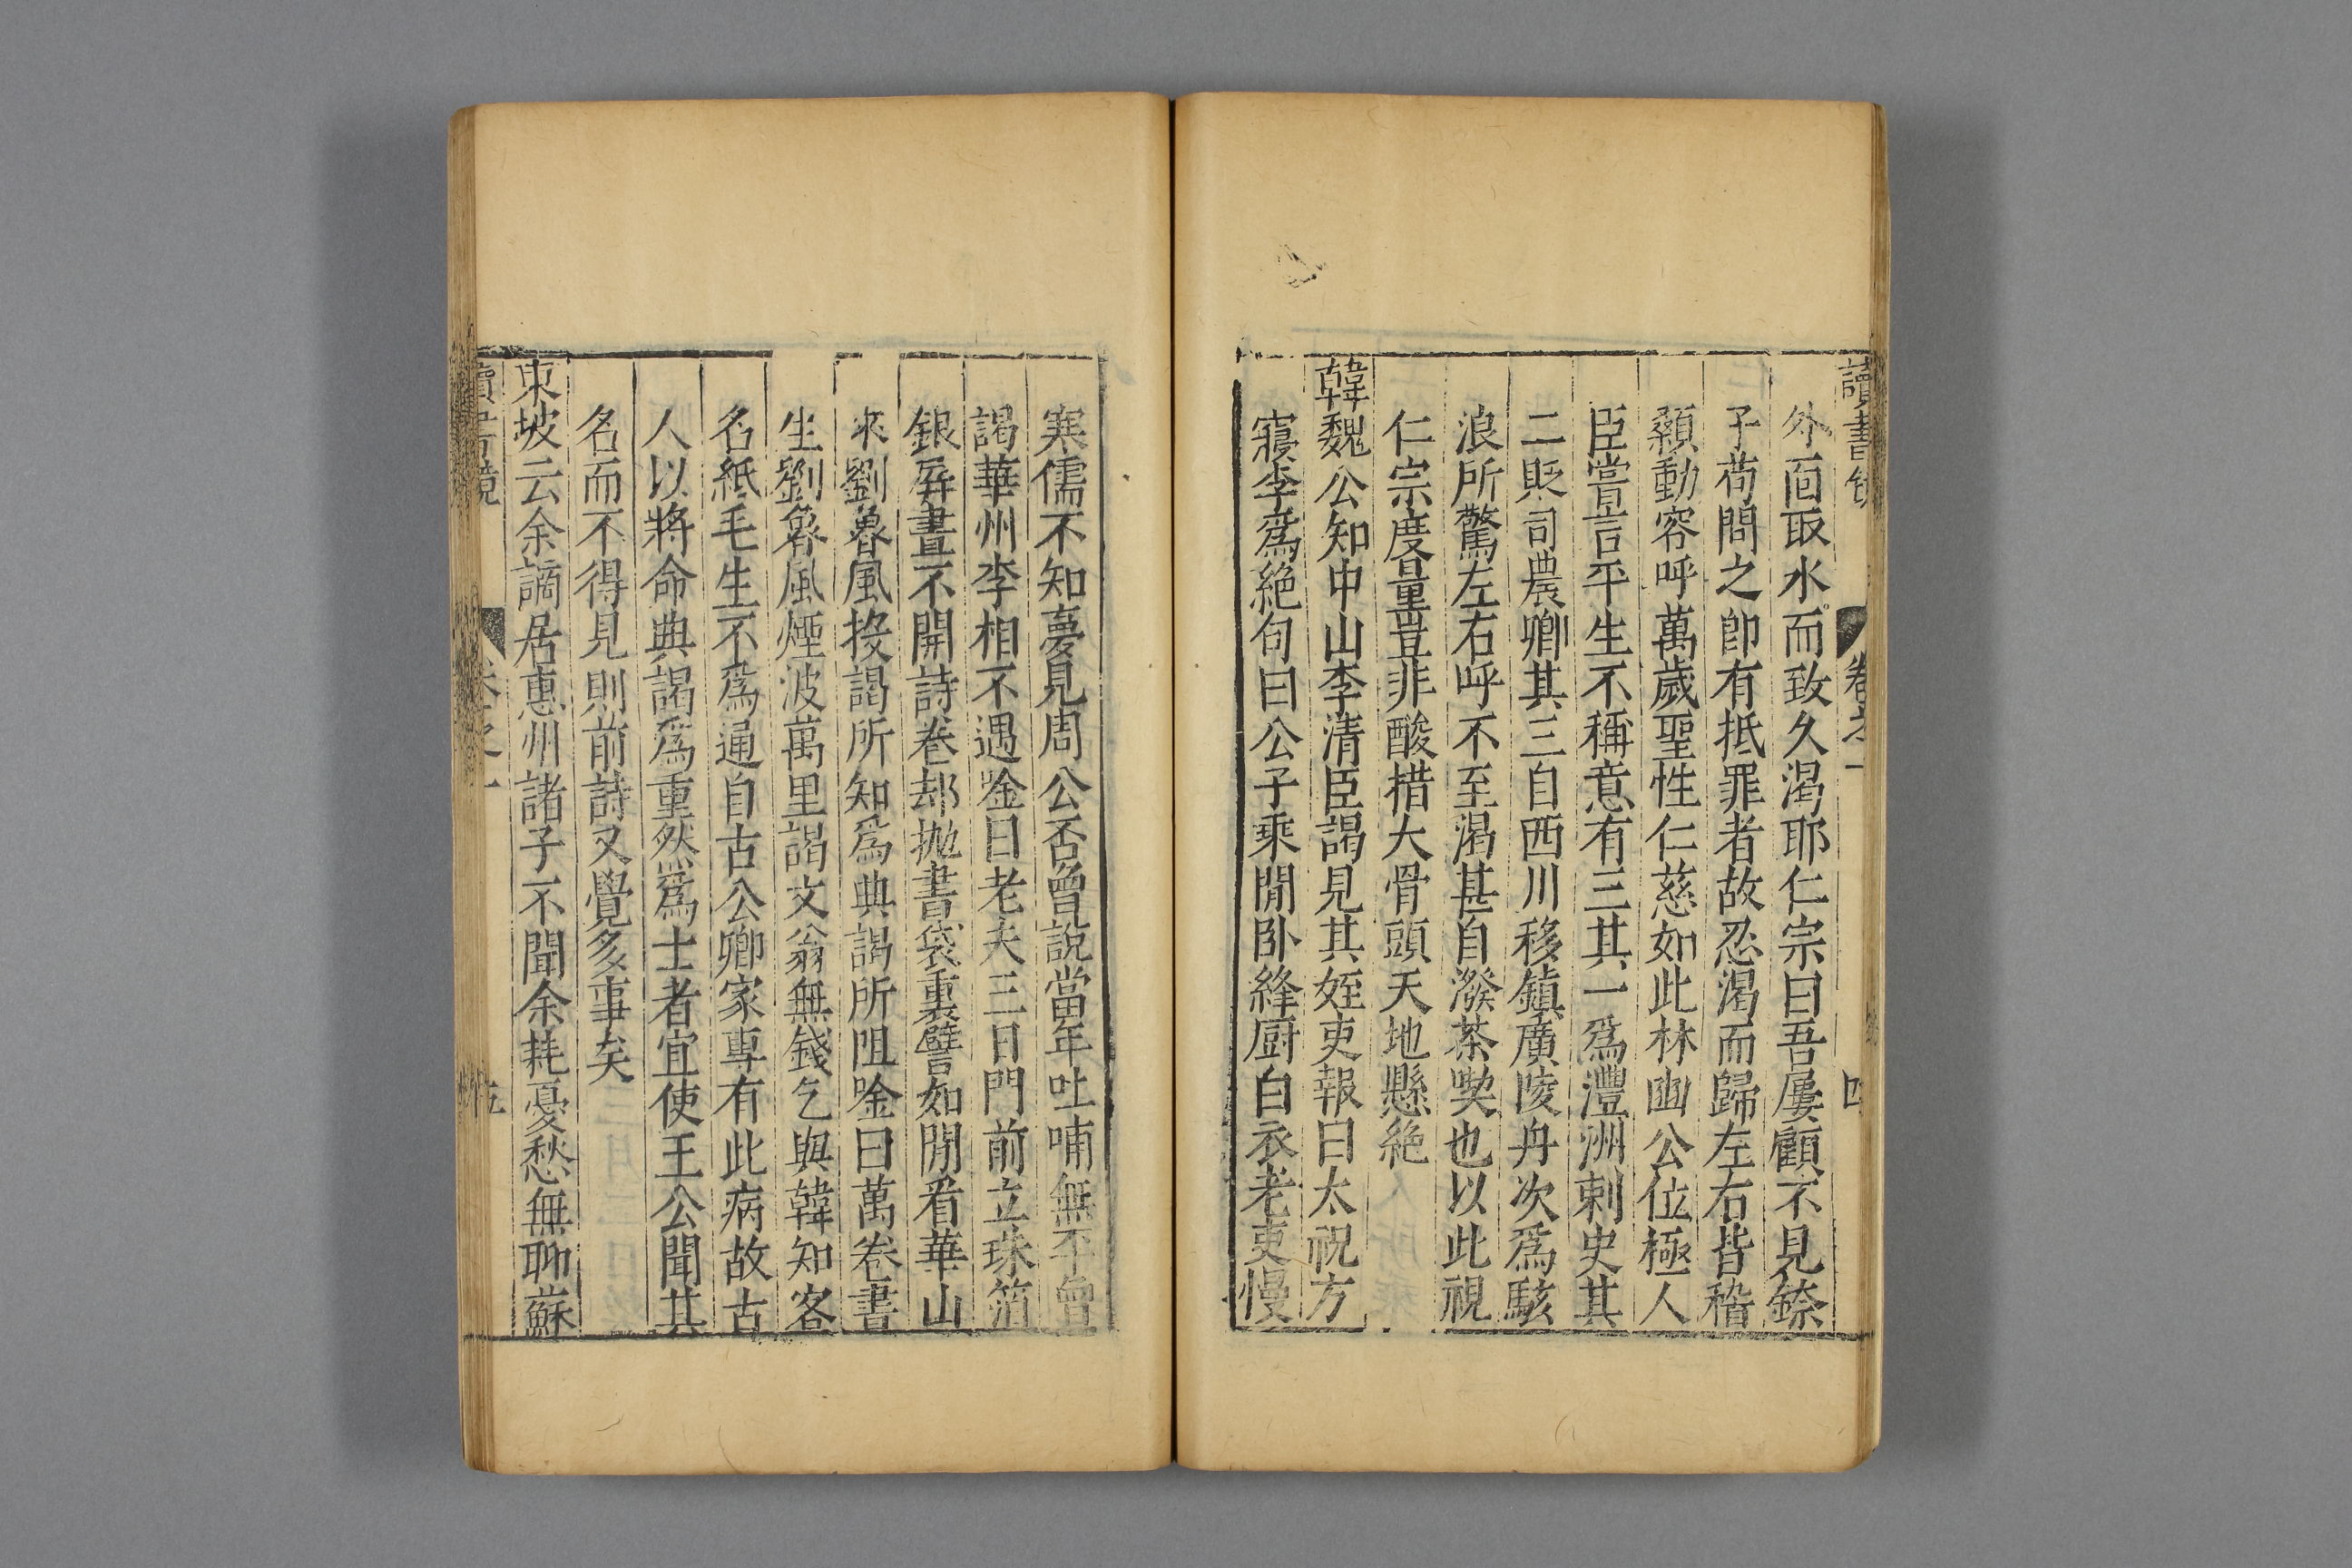 讀書鏡 卷之一 四
外面取水而致久渴耶仁宗曰吾屢顧不見鐐
子苟問之卽有抵罪者故忍渴而歸左右皆稽
顙動容呼萬歲聖性仁慈如此林幽公位極人
臣嘗言平生不稱意有三其一爲灃洲刺史其
二貶司農卿其三自西川移鎮廣陵舟次爲駭
浪所驚左右呼不至渴甚自潑茶喫也以此視
仁宗度量豈非酸措大骨頭天地懸絶
韓魏公知中山李清臣謁見其姪吏報曰太祝方
寢李爲絶句曰公子乘閒臥絳厨白衣老吏慢
寒儒不知夢見周公否曾說當年吐哺無不曾
謁華州李相不遇唫曰老夫三日門前立珠箔
銀屏晝不開詩卷却拋書袋裏譬如閒看華山
來劉魯風投謁所知爲典謁所阻唫曰萬卷書
生劉魯風煙波萬里謁文翁無錢乞與韓知客
名紙毛生不爲通自古公卿家專有此病故古
人以將命典謁爲重然爲士者宜使王公聞其
名而不得見則前詩又覺多事矣
東坡云余謫居惠州諸子不聞余耗憂愁無聊蘇
讀書鏡 卷之一 五